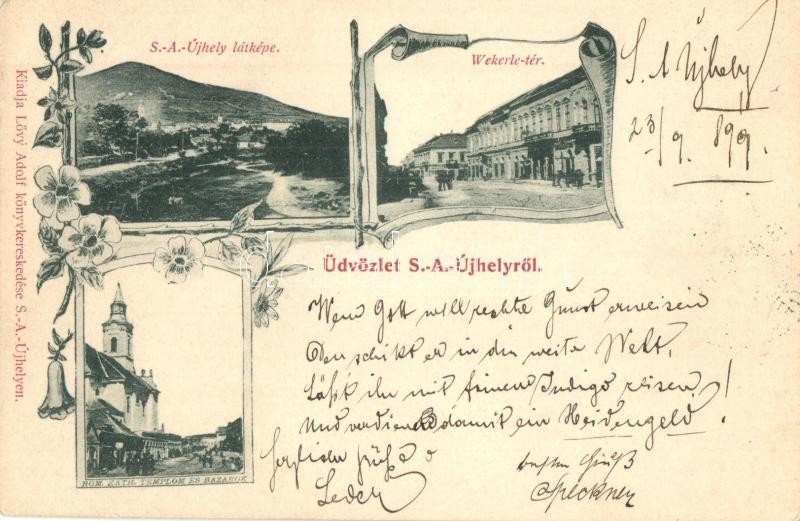 S.-A.-Újhely látképe.
Wekerle-tér.
S. A Újhely
23/9. 899.
Kiadja Lövy Adolf könyvkereskedése S.-A.-Újhelyen.
Üdvözlet S.-A.-Újhelyről.
Wem Gott will rechte Gunst erweisen
Den schikt er in die weite Welt,
Läßt ihn mit feinem Indigo reisen
Und verdienen damit ein Heidengeld!
ROM. KATH. TEMPLOM ÉS BAZÁROK